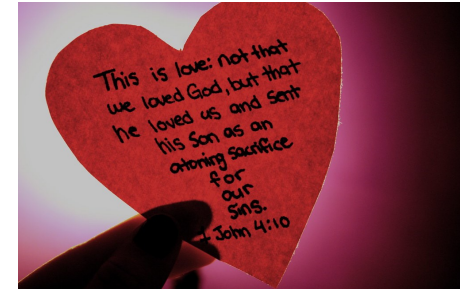 This is love: not that
we loved God, but that
he loved us and sent
his Son as an
atoning sacrifice
for
our
sins.
1 John 4:10